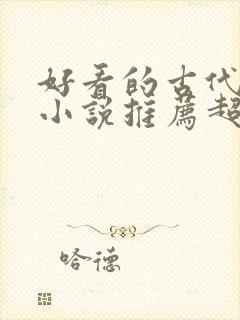 好看的古代
小说推荐超
哈德